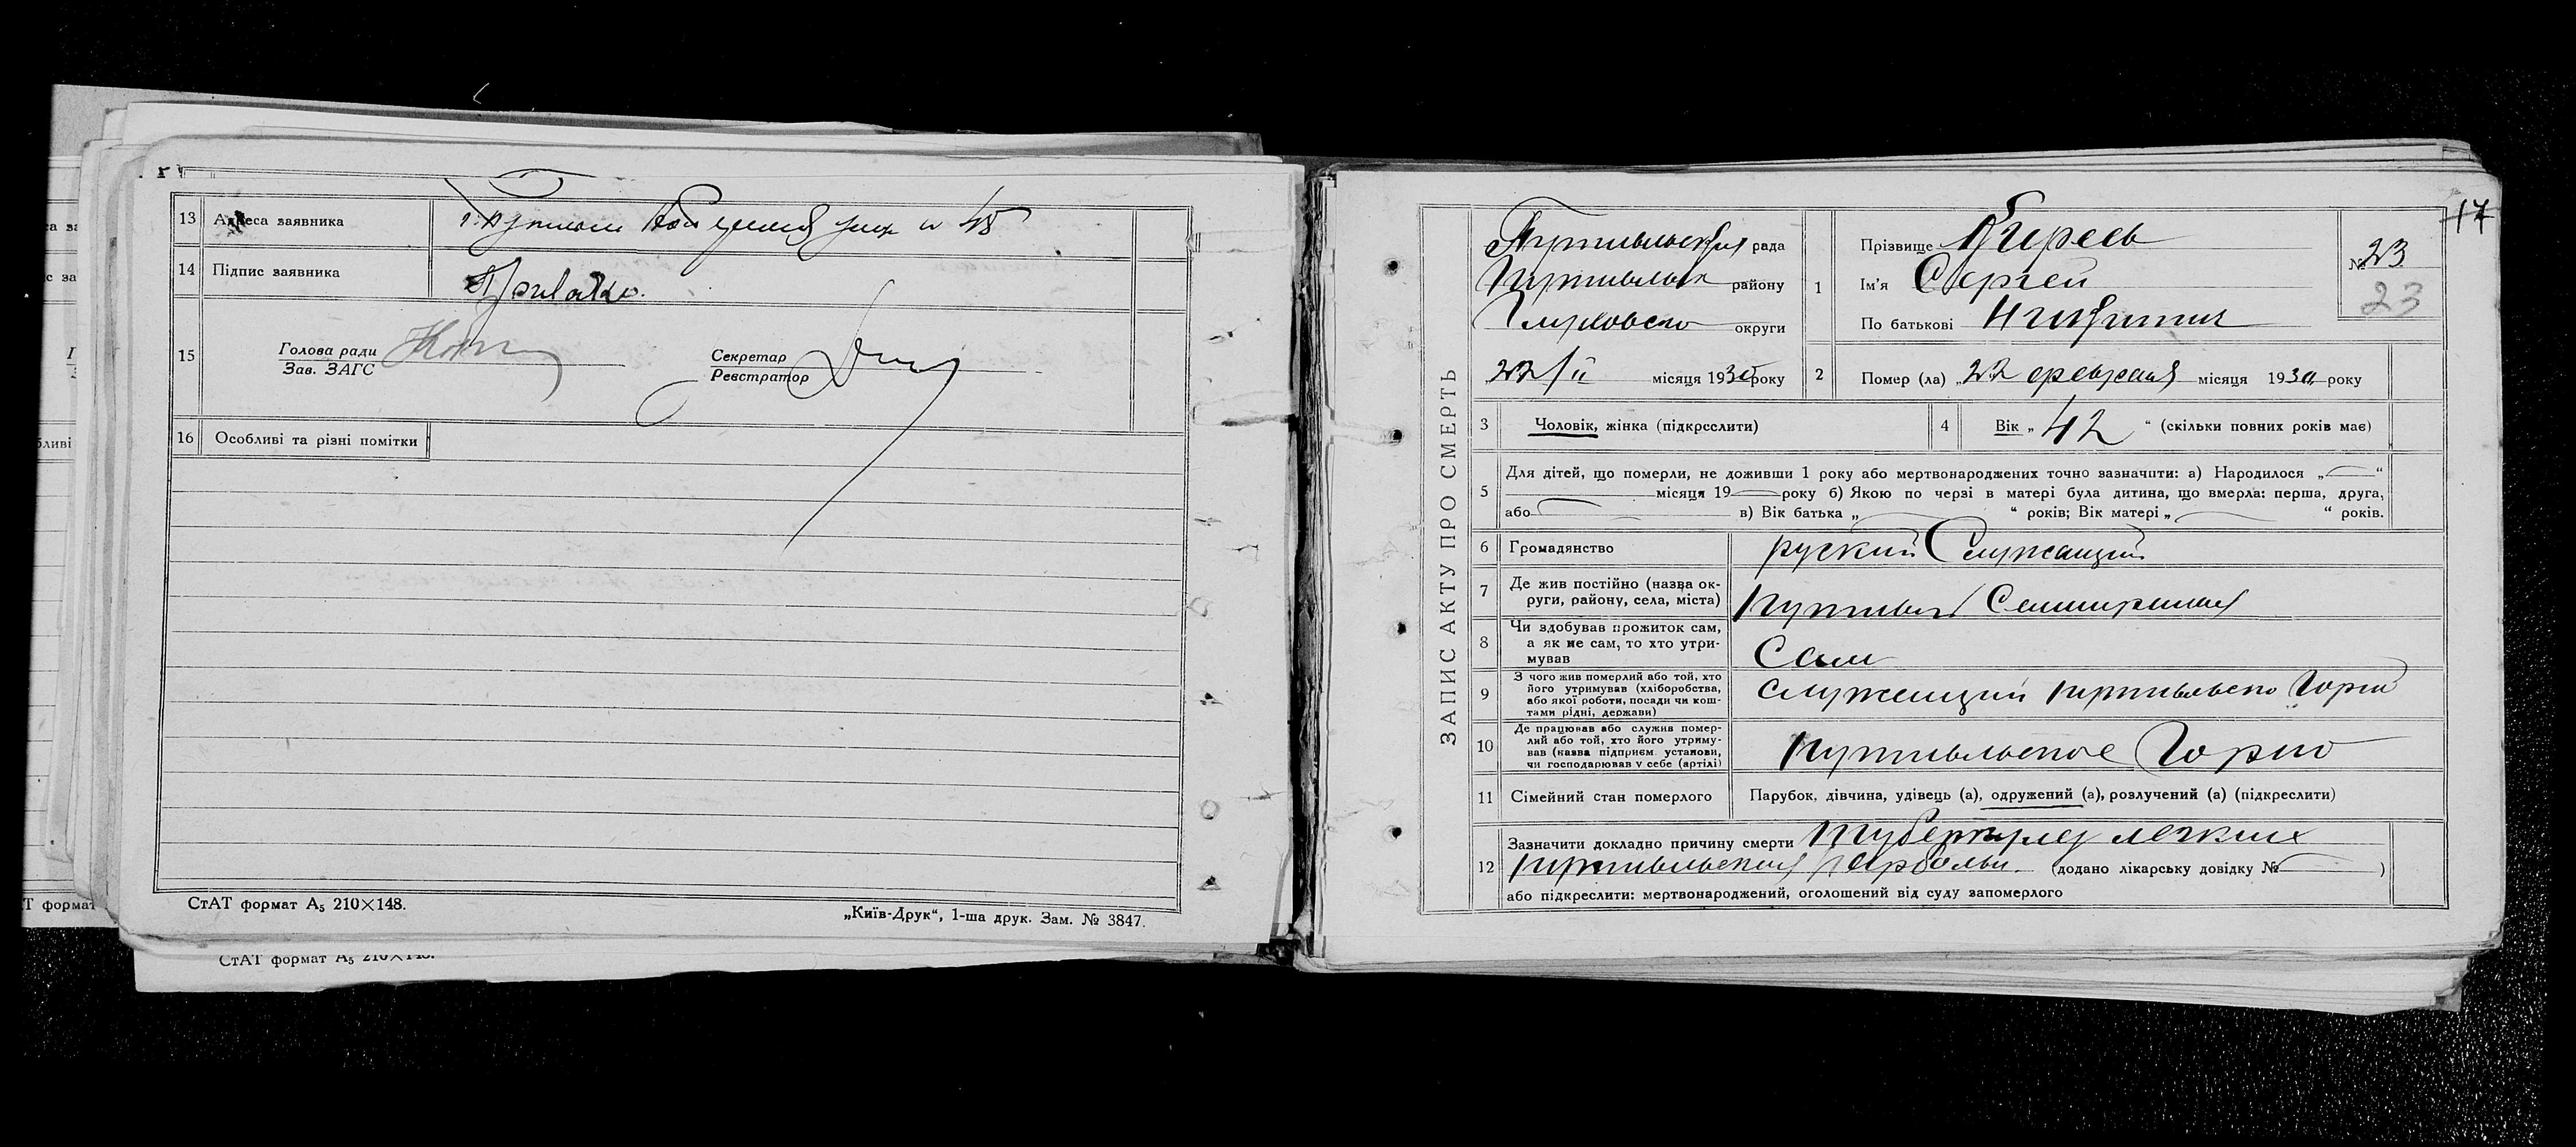 13 Адреса заявника
14 Підпис заявника
15 Голова ради
Зав. ЗАГС
Секретар
Реєстратор
16 Особливі та різні помітки
СтАТ формат А₅ 210×148.
„Київ-Друк“, 1-ша друк. Зам. № 3847.
СтАТ формат А₅ 210×148.
17
ЗАПИС АКТУ ПРО СМЕРТЬ
Путивльская рада
Путивльск району
Глуховско округи
22/II місяця 1930 року
1 Прізвище Киреев
Ім'я Сергей
По батькові Никитич
№ 23
23
2 Помер (ла) „22 февраля місяця 1930 року
3 Чоловік, жінка (підкреслити)
4 Вік „42“ (скільки повних років має)
5 Для дітей, що померли, не доживши 1 року або мертвонароджених точно зазначити: а) Народилося „ “
місяця 19 року б) Якою по черзі в матері була дитина, що вмерла: перша, друга,
або в) Вік батька „ “ років; Вік матері „ “ років.
6 Громадянство руский Служащий
7 Де жив постійно (назва ок-
руги, району, села, міста) Путивль
8 Чи здобував прожиток сам,
а як не сам, то хто утри-
мував Сам
9 З чого жив померлий або той, хто
його утримував (хліборобства,
або якої роботи, посади чи кош-
тами рідні, держави) служащий Путивльско
10 Де працював або служив помер-
лий або той, хто його утриму-
вав (назва підприєм. установи,
чи господарював у себе (артілі) Путивльское
11 Сімейний стан померлого Парубок, дівчина, удівець (а), одружений (а), розлучений (а) (підкреслити)
12 Зазначити докладно причину смерти туберкулез легких
Путивльская (додано лікарську довідку № )
або підкреслити: мертвонароджений, оголошений від суду запомерлого